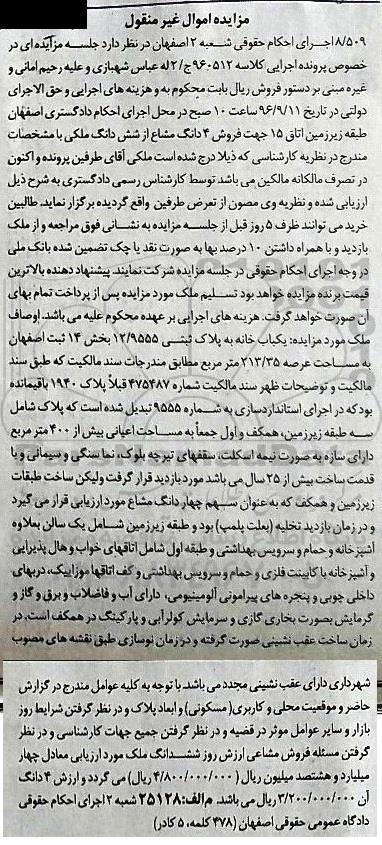 مزایده اموال غیر منقول
۸/۵۰۹ اجرای احکام حقوقی شعبه ۲ اصفهان در نظر دارد جلسه مزایده ای در
خصوص پرونده اجرایی کلاسه ۹۶۰۵۱۲ج/۲ له عباس شهبازی و علیه رحیم امانی و
غیره مبنی بر دستور فروش ریال بابت محکوم به و هزینه های اجرایی و حق الاجرای
دولتی در تاریخ ۹۶/۹/۱۱ ساعت ۱۰ صبح در محل اجرای احکام دادگستری اصفهان
طبقه زیرزمین اتاق ۱۵ جهت فروش ۴ دانگ مشاع از شش دانگ ملکی با مشخصات
مندرج در نظریه کارشناسی که ذیلا درج شده است ملکی آقای طرفین پرونده و اکنون
در تصرف مالکانه مالکین می باشد توسط کارشناس رسمی دادگستری به شرح ذیل
ارزیابی شده و نظریه وی مصون از تعرض طرفین واقع گردیده برگزار نماید. طالبین
خرید می توانند ظرف ۵ روز قبل از جلسه مزایده به نشانی فوق مراجعه و از ملک
بازدید و با همراه داشتن ۱۰ درصد بها به صورت نقد یا چک تضمین شده بانک ملی
در وجه اجرای احکام حقوقی در جلسه مزایده شرکت نمایند. پیشنهاد دهنده بالاترین
قیمت برنده مزایده خواهد بود تسلیم ملک مورد مزایده پس از پرداخت تمام بهای
آن صورت خواهد گرفت. هزینه های اجرایی بر عهده محکوم علیه می باشد. اوصاف
ملک مورد مزایده: یکباب خانه به پلاک ثبتی ۱۲/۹۵۵۵ بخش ۱۴ ثبت اصفهان
به مساحت عرصه ۲۱۳/۳۵ متر مربع مطابق مندرجات سند مالکیت که طبق سند
مالکیت و توضیحات ظهر سند مالکیت شماره ۴۷۵۴۸۷ قبلاً پلاک ۱۹۴۰ باقیمانده
بود که در اجرای استانداردسازی به شماره ۹۵۵۵ تبدیل شده است که پلاک شامل
سه طبقه زیرزمین، همکف و اول جمعاً به مساحت اعیانی بیش از ۴۰۰ متر مربع
دارای سازه به صورت نیمه اسکلت، سقفهای تیرچه بلوک، نما سنگی و سیمانی و با
قدمت ساخت بیش از ۲۵ سال می باشد مورد بازدید قرار گرفت ولیکن ساخت طبقات
زیرزمین و همکف که به عنوان سهم چهار دانگ مشاع مورد ارزیابی قرار می گیرد
و در زمان بازدید تخلیه (بعلت پلمپ) بود و طبقه زیرزمین شامل یک سالن بعلاوه
آشپزخانه و حمام و سرویس بهداشتی و طبقه اول شامل اتاقهای خواب و هال پذیرایی
و آشپزخانه با کابینت فلزی و حمام و سرویس بهداشتی و کف اتاقها موزاییک، دربهای
داخلی چوبی و پنجره های پیرامونی آلومینیومی، دارای آب و فاضلاب و برق و گاز و
گرمایش بصورت بخاری گازی و سرمایش کولرآبی و پارکینگ در همکف است. در
زمان ساخت عقب نشینی صورت گرفته و در زمان نوسازی طبق نقشه های مصوب
شهرداری دارای عقب نشینی مجدد می باشد. با توجه به کلیه عوامل مندرج در گزارش
حاضر و موقعیت محلی و کاربری( مسکونی) و ابعاد پلاک و در نظر گرفتن شرایط روز
بازار و سایر عوامل موثر در قضیه و در نظر گرفتن جمیع جهات کارشناسی و در نظر
گرفتن مسئله فروش مشاعی ارزش روز ششدانگ ملک مورد ارزیابی معادل چهار
میلیارد و هشتصد میلیون ریال (۴/۸۰۰/۰۰۰/۰۰۰ ریال) می گردد و ارزش ۴ دانگ
آن ۳/۲۰۰/۰۰۰/۰۰۰ ریال می باشد. م الف: ۲۵۱۲۸ شعبه ۲ اجرای احکام حقوقی
دادگاه عمومی حقوقی اصفهان (۳۷۸ کلمه، ۵ کادر)